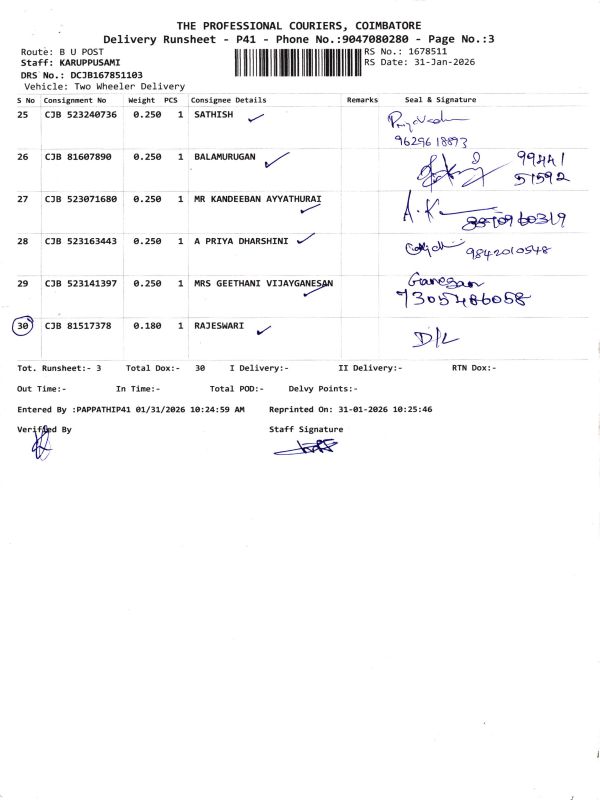 THE PROFESSIONAL COURIERS, COIMBATORE
Delivery Runsheet - P41 - Phone No.:9047080280 - Page No.:3
Route: B U POST RS No.: 1678511
Staff: KARUPPUSAMI RS Date: 31-Jan-2026
DRS No.: DCJB167851103
Vehicle: Two Wheeler Delivery
S No Consignment No Weight PCS Consignee Details Remarks Seal & Signature
25 CJB 523240736 0.250 1 SATHISH
9629618893
26 CJB 81607890 0.250 1 BALAMURUGAN 99441
51592
27 CJB 523071680 0.250 1 MR KANDEEBAN AYYATHURAI A.K
28 CJB 523163443 0.250 1 A PRIYA DHARSHINI 9842010548
29 CJB 523141397 0.250 1 MRS GEETHANI VIJAYGANESAN Ganesan
7305486058
30 CJB 81517378 0.180 1 RAJESWARI D/L
Tot. Runsheet:- 3 Total Dox:- 30 I Delivery:- II Delivery:- RTN Dox:-
Out Time:- In Time:- Total POD:- Delvy Points:-
Entered By :PAPPATHIP41 01/31/2026 10:24:59 AM Reprinted On: 31-01-2026 10:25:46
Verified By Staff Signature